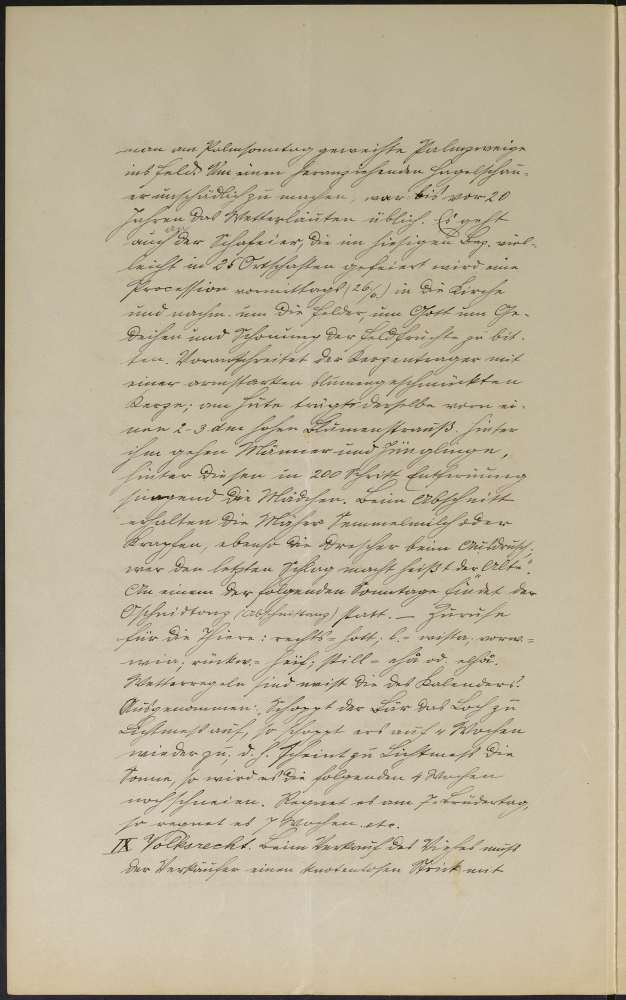 man am Palmsonntag geweihte Palmzweige
ins Feld. Um einen heranziehenden Hagelschau-
er unschädlich zu machen, war bis vor 20
Jahren das Wetterläuten üblich. Es geht
auch der Schafeier, die im hiesigen Bez. viel-
leicht in 25 Ortschaften gefeiert wird eine
Procession vormittags (26/6) in die Kirche
und nachm. um die Felder, um Gott um Ge-
deihen und Schonung der Feldfrüchte zu bit-
ten. Voranschreitet der Kerzenträger mit
einer armstarken blumengeschmückten
Kerze; am Hute trägt derselbe vorn ei-
nen 2-3 dm hohen Blumenstrauß. Hinter
ihm gehen Männer und Jünglinge,
hinter diesen in 200 Schritt Entfernung
singend die Mädchen. Beim Abschnitt
erhalten die Mäher Semmelmilch oder
Krapfen, ebenso die Drescher beim Ausdrusch;
wer den letzten Schlag macht heißt „der Alte“.
An einem der folgenden Sonntage findet der
Oschnidtonz (Abschnittanz) statt. — Zurufe
für die Thiere: rechts = hott; l. = wista; vorw. =
wia; rückw. = still =
Wetterregeln sind meist die des Kalenders.
Ausgenommen: Schoppt der Bär das Loch zu
Lichtmeß auf, so schoppt ers auf 4 Wochen
wieder zu; d. h. scheint zu Lichtmeß die
Sonne, so wird es die folgenden 4 Wochen
noch schneien. Regnet es am 7-Brüdertag,
so regnet es 7 Wochen etc.
IX Volksrecht. Beim Verkauf des Viehes muß
der Verkäufer einen knotenlosen Strick mit